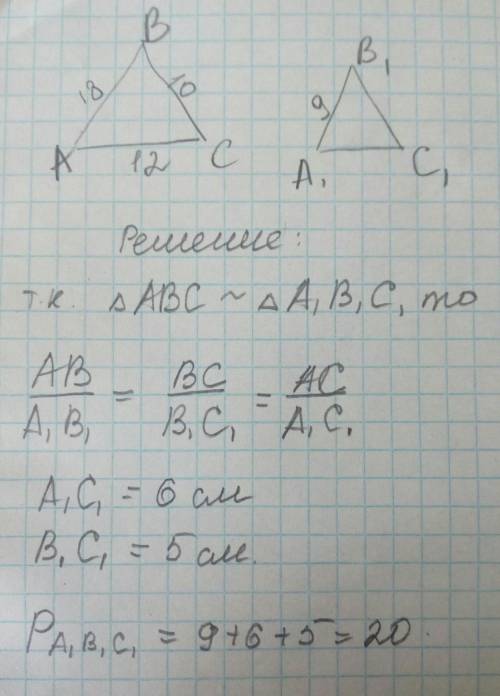 B B₁
18 10 9
A 12 C A₁ C₁
Решение:
т.к. △ABC ~ △A₁B₁C₁ то
AB/A₁B₁ = BC/B₁C₁ = AC/A₁C₁
A₁C₁ = 6 см
B₁C₁ = 5 см.
P A₁B₁C₁ = 9+6+5=20.